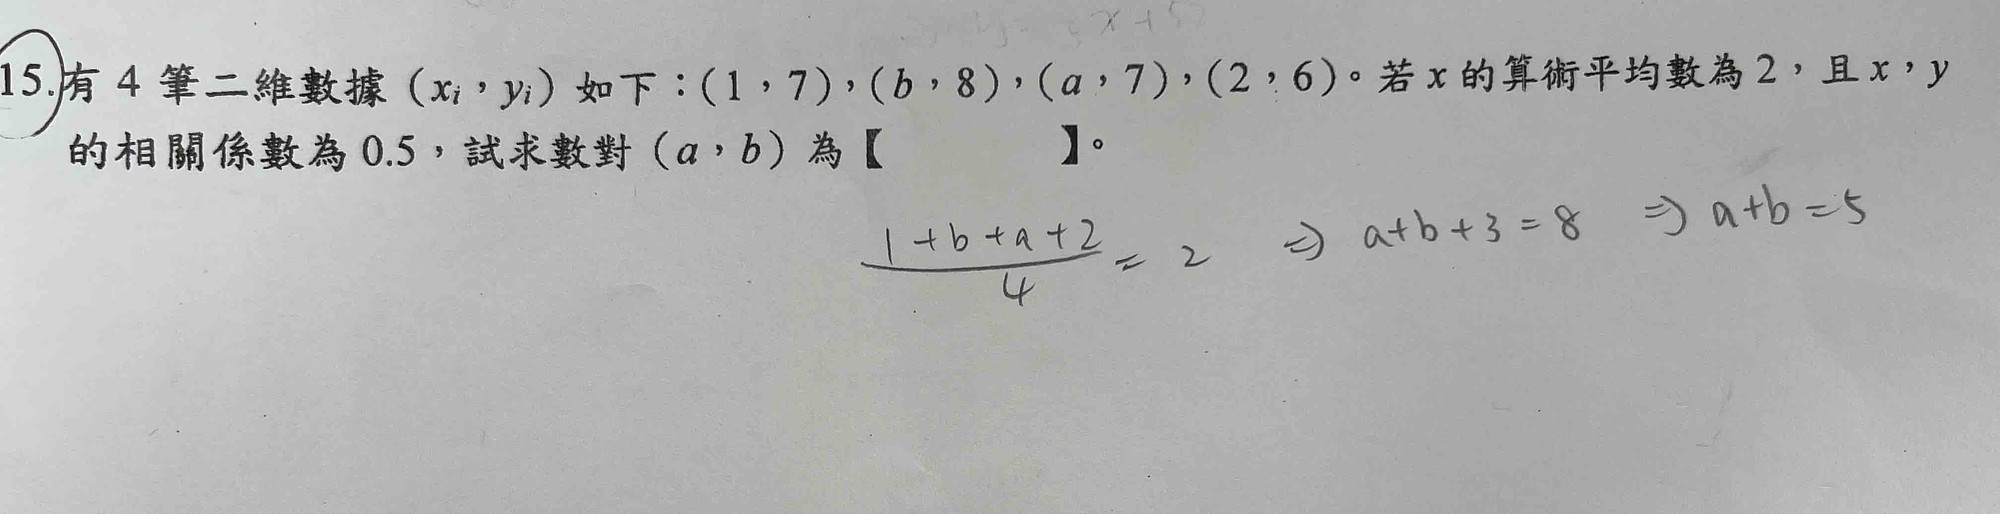 15.有 4 筆二維數據（xᵢ，yᵢ）如下：(1，7)，(b，8)，(a，7)，(2，6)。若 x 的算術平均數為 2，且 x，y
的相關係數為 0.5，試求數對（a，b）為【　　　】。
(1+b+a+2)/4 = 2 ⇒ a+b+3=8 ⇒ a+b=5